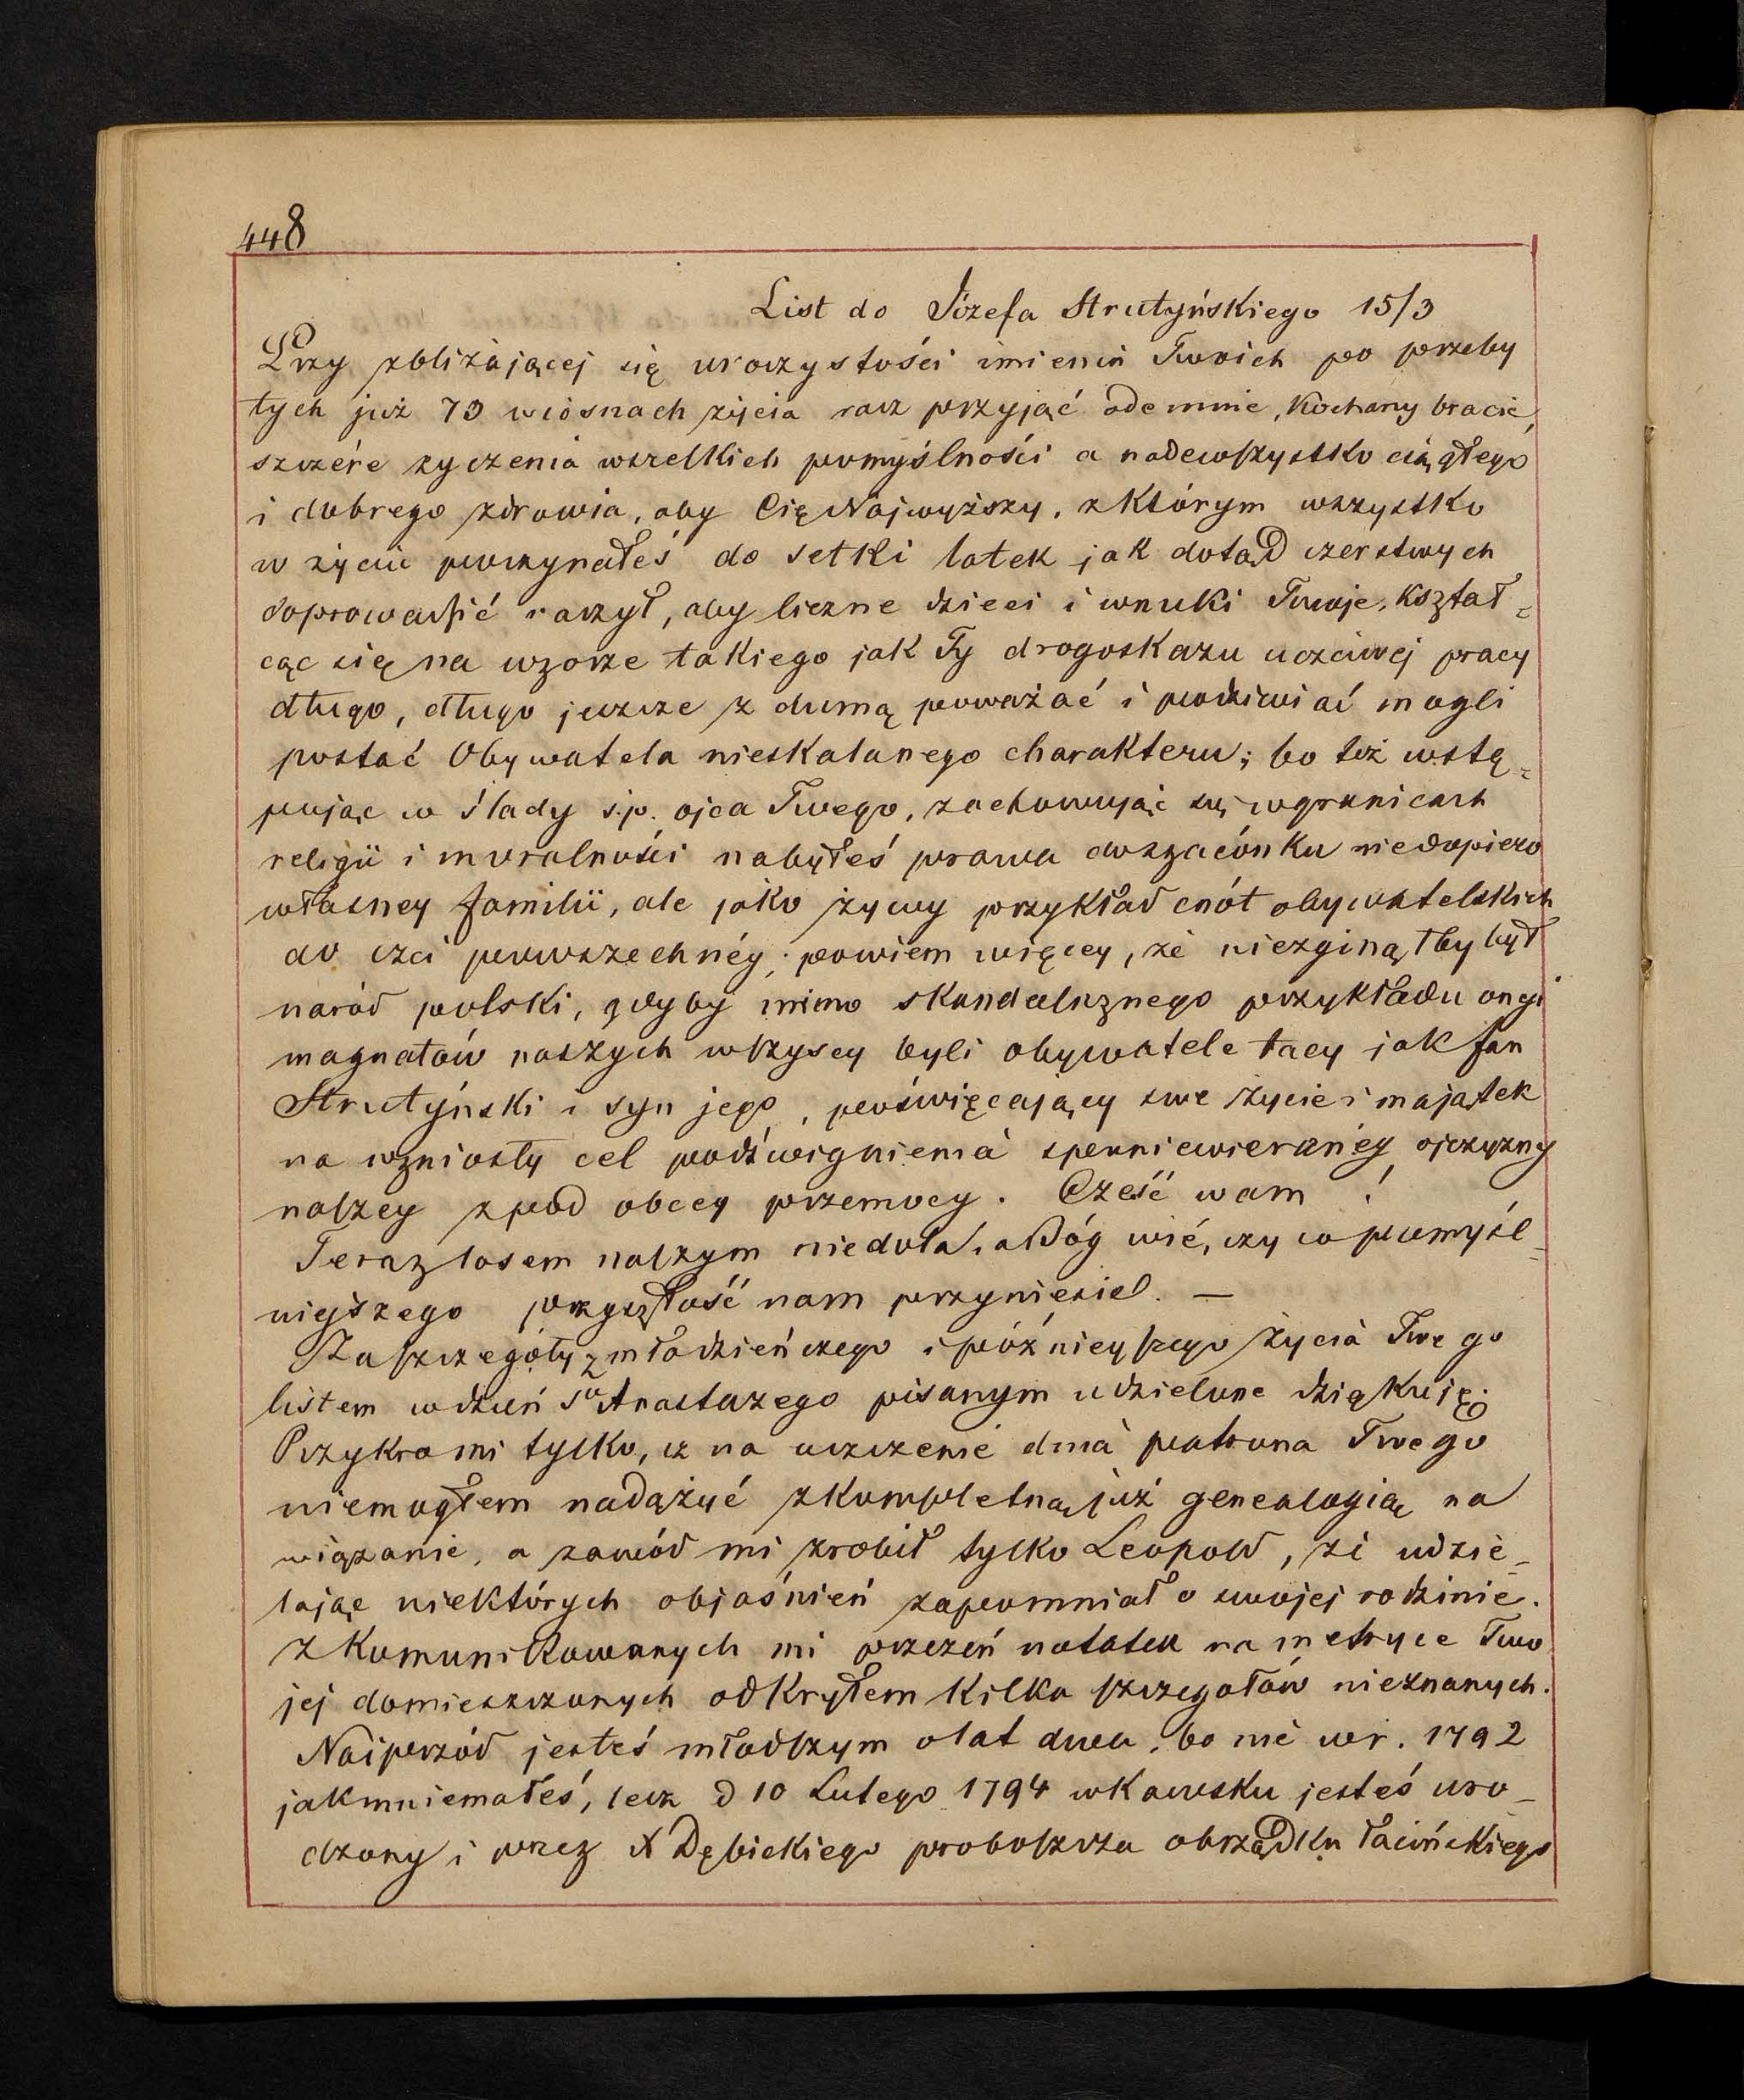 448
List do Józefa Strutyńskiego 15/3
Przy zbliżającej się uroczystości imienin Twoich po przeby
tych już 73 wiosnach życia racz przyjąć odemnie, kochany bracie,
szczére życzenia wszelkich pomyślności a nadewszystko ciągłego
i dobrego zdrowia, aby Cię Najwyższy, z którym wszystko
w życiu poczynałeś do setki latek jak dotąd czerstwych
doprowadzić raczył, aby liczne dzieci i wnuki Twoje, kształ=
cąc się na wzorze takiego jak Ty drogoskazu uczciwej pracy
długo, długo jeszcze z dumą poważać i podziwiać mogli
postać Obywatela nieskalanego charakteru; bo też wstę=
pując w ślady ś.p. ojca Twego, zachowując się w granicach
religii i moralności nabyłeś prawa do szacónku nie dopiero
własney familii, ale jako żywy przykład cnót obywatelskich
do czci powszechnéy; powiem więcey, że niezginąłby był
naród polski, gdyby mimo skandalicznego przykładu ongi
magnatów naszych wszyscy byli obywatele tacy jak Jan
Strutyński i syn jego, poświęcający swe życie i majątek
na wzniosły cel podźwignienia sponiewieranéy ojczyzny
naszey z pod obcey przemocy. Cześć wam!
Teraz losem naszym niedola, a Bóg wié, czy co pomyśl=
niejszego przyszłość nam przyniesie. —
Za szczegóły z młodzieńczego i późnieyszego życia Twego
listem w dzień Sgo Anastazego pisanym udzielone dziękuję;
Przykro mi tylko, iż na uczczenie dnia patrona Twego
niemogłem nadążyć z kompletną już genealogią na
wiązanie, a zawód mi zrobił tylko Leopold, że udzie_
lając niektórych objaśnień zapomniał o swojej rodzinie.
Z komunikowanych mi przezeń notatek na metryce Two
jej domieszczonych odkryłem kilka szczegołów nieznanych.
Naiprzód jesteś młodszym o lat dwa, bo nie w r. 1792
jak mniemałeś, lecz d 10 Lutego 1794 w Kawsku jesteś uro_
dzony i przez X Dębickiego proboszcza obrządku łacińskiego